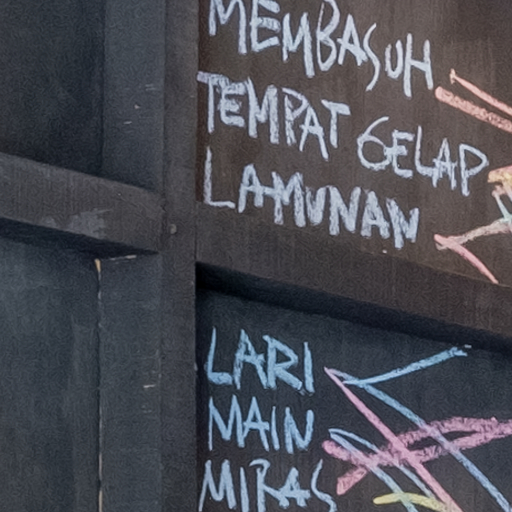 MEMBASUH
TEMPAT GELAP
LAMUNAN
LARI
MAIN
MIRAS